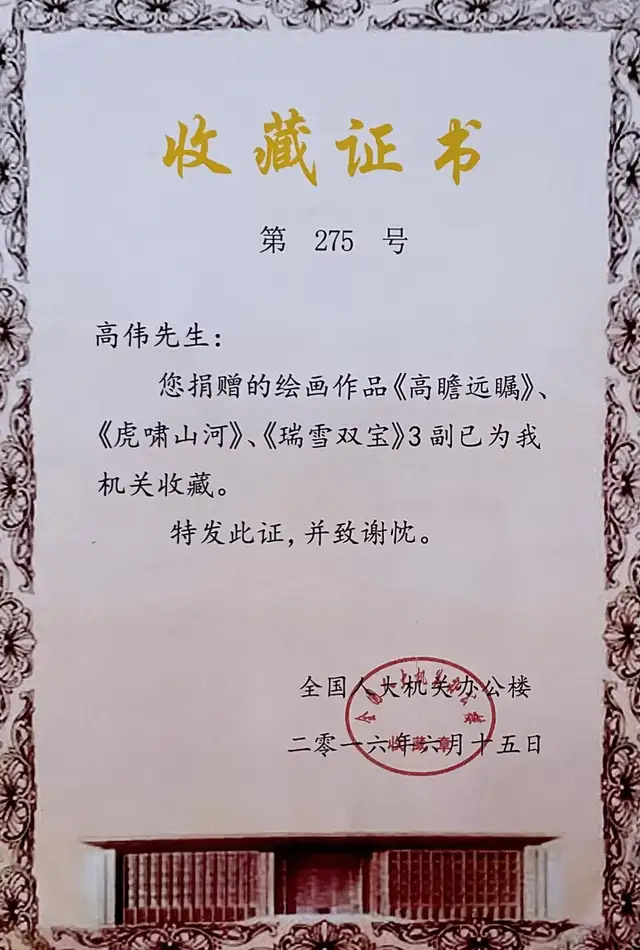 收藏证书
第 275 号
高伟先生：
您捐赠的绘画作品《高瞻远瞩》、
《虎啸山河》、《瑞雪双宝》3副已为我
机关收藏。
特发此证，并致谢忱。
全国人大机关办公楼
二零一六年六月十五日
收藏章